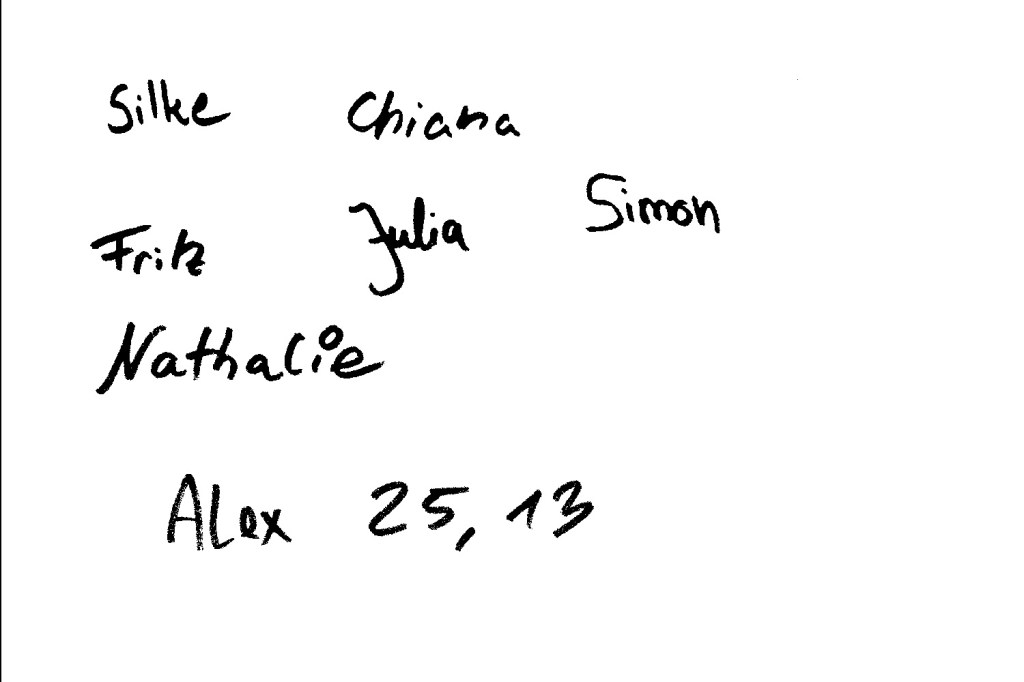 Silke Chiana
Fritz Julia Simon
Nathalie
Alex 25,13